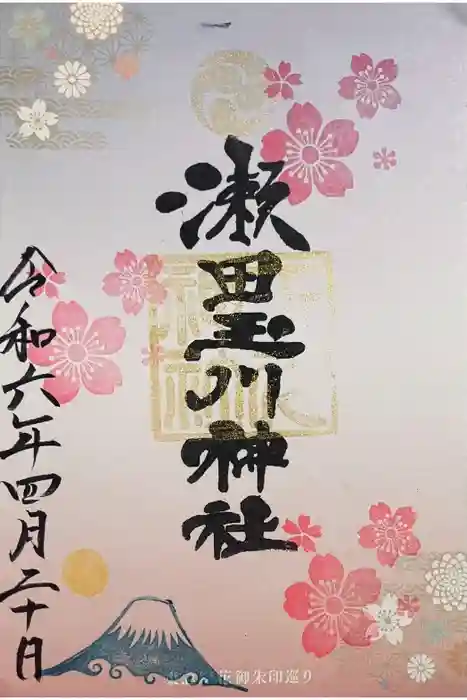 瀬田玉川神社
令和六年四月二十日
花御朱印巡り